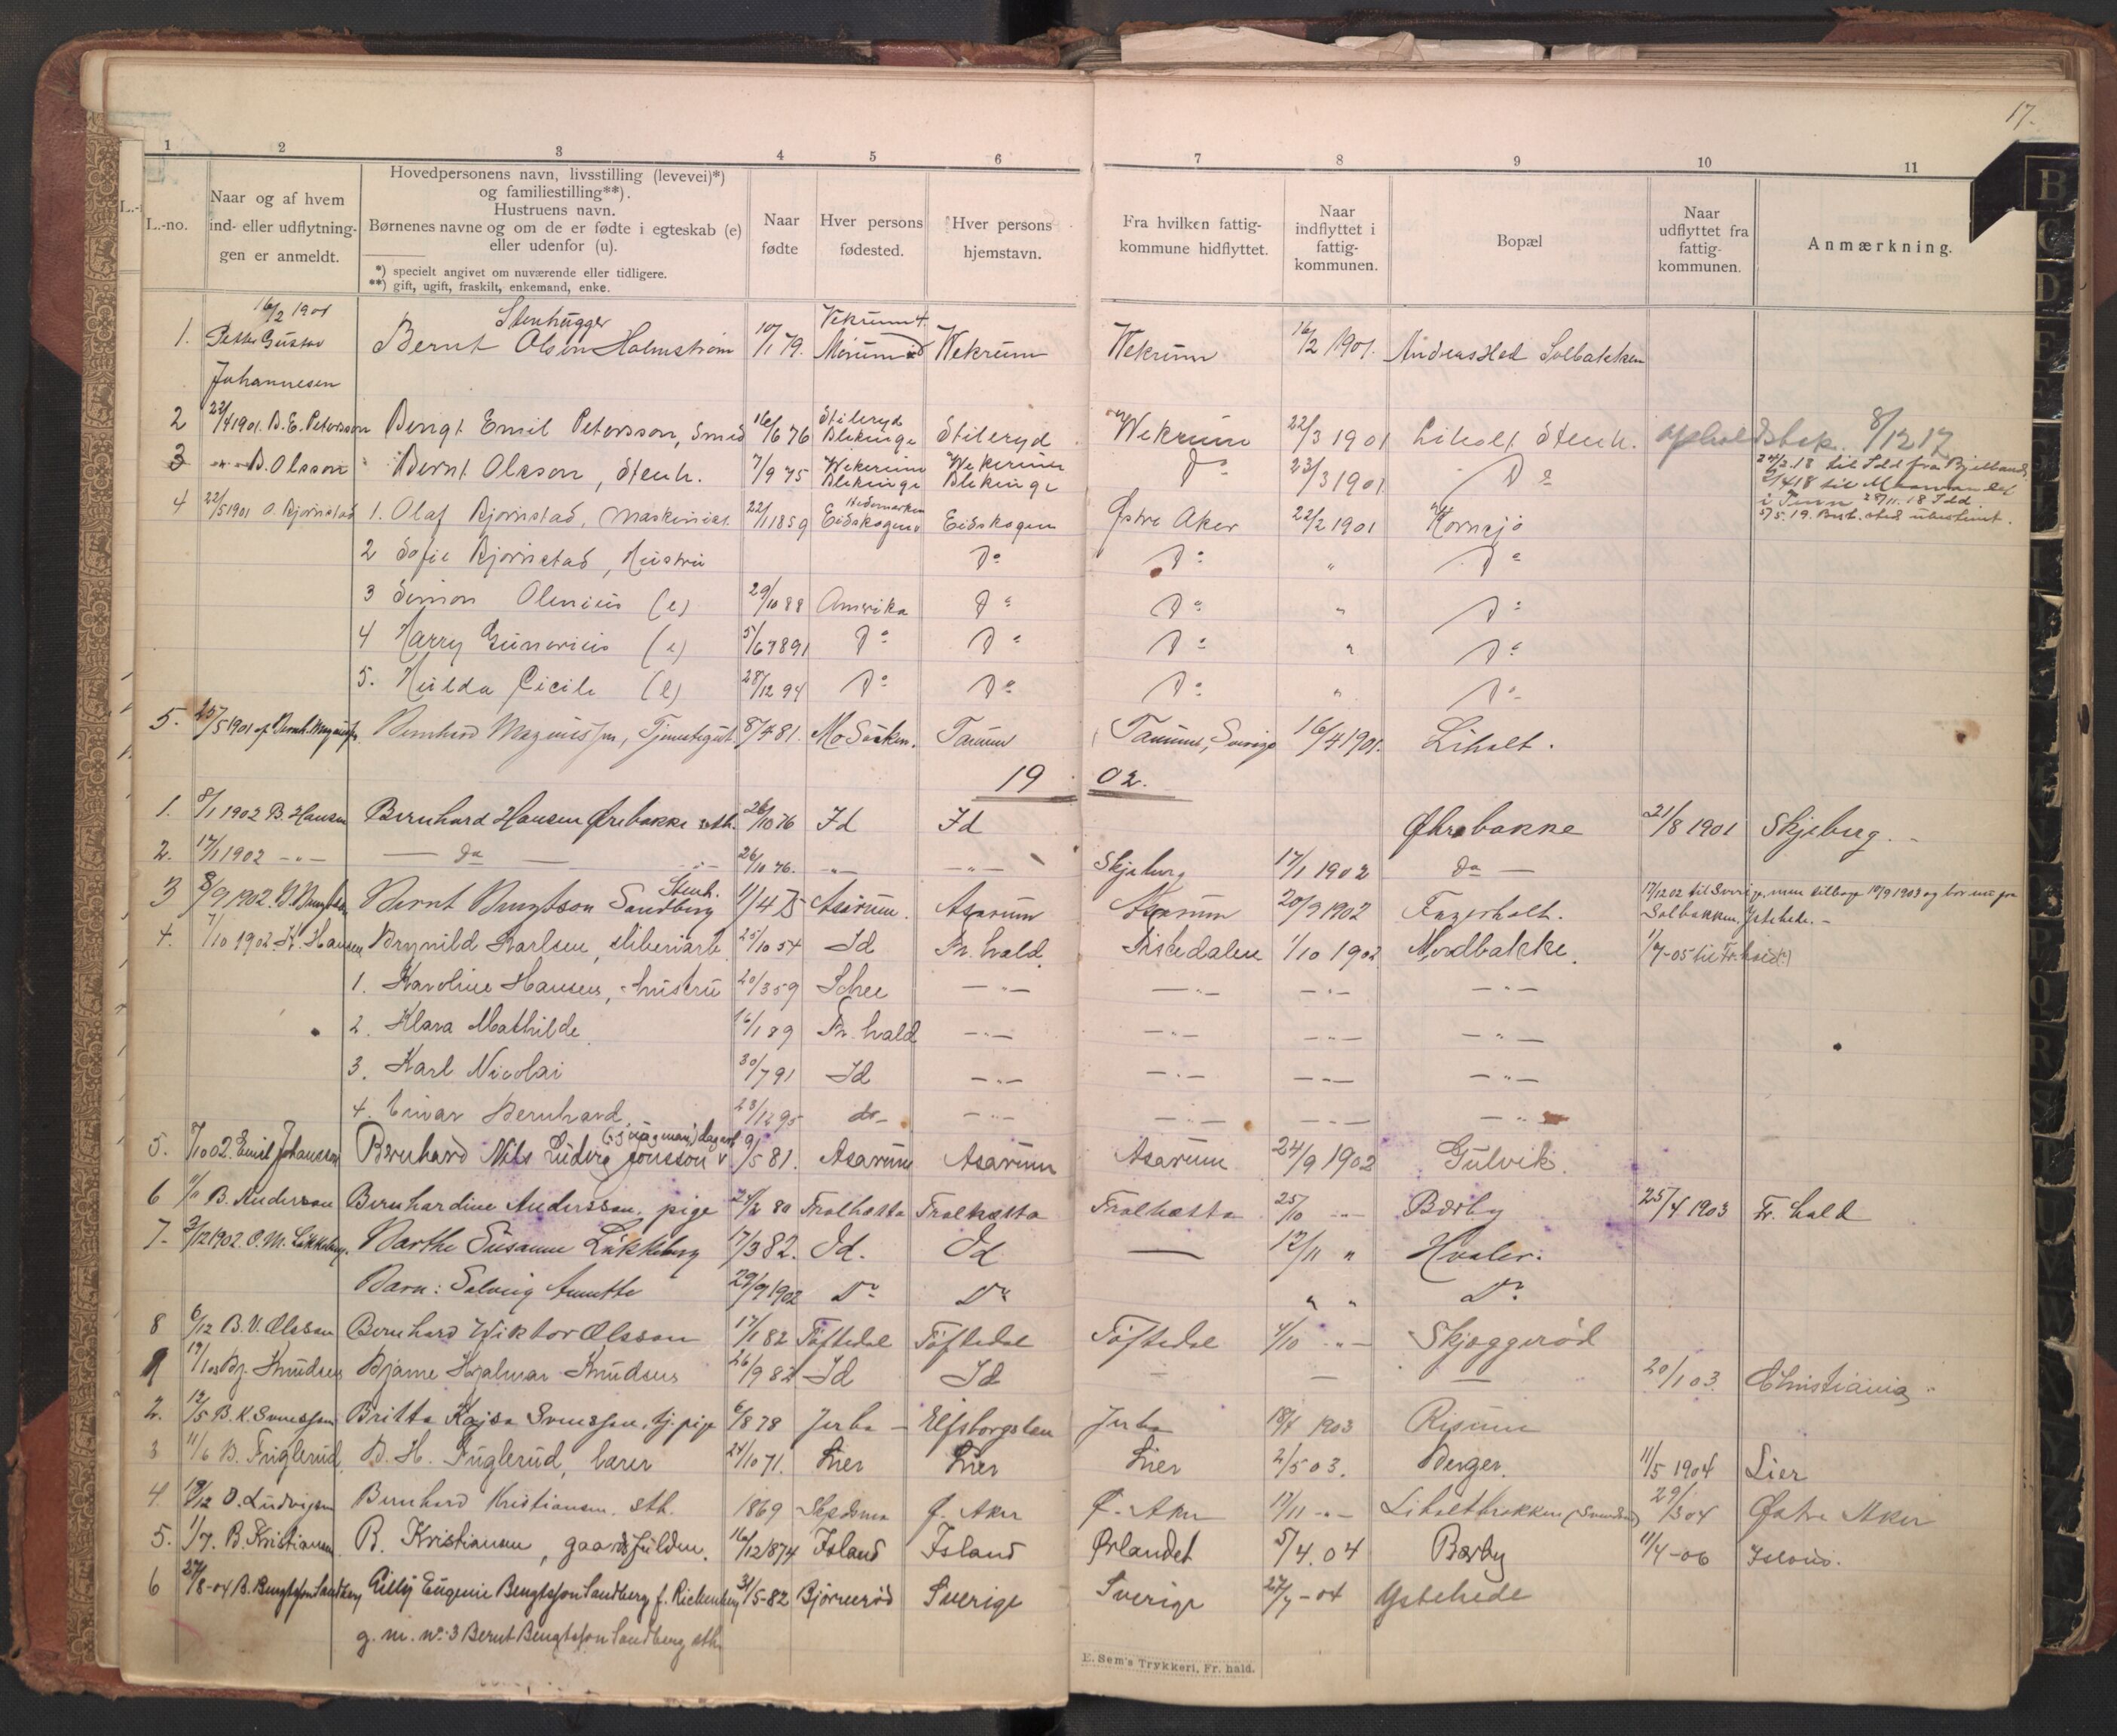 17.
1 2 3 4 5 6 7 8 9 10 11
L.-no.
Naar og af hvem
ind- eller udflytnin-
gen er anmeldt.
Hovedpersonens navn, livsstilling (levevei)*)
og familiestilling**).
Hustruens navn.
Børnenes navne og om de er fødte i egteskab (e)
eller udenfor (u).
*) specielt angivet om nuværende eller tidligere.
**) gift, ugift, fraskilt, enkemand, enke.
Naar
fødte
Hver persons
fødested.
Hver persons
hjemstavn.
Fra hvilken fattig-
kommune hidflyttet.
Naar
indflyttet i
fattig-
kommunen.
Bopæl
Naar
udflyttet fra
fattig-
kommunen.
Anmærkning.
16/2 1901 Stenhugger Vekrum
1. Petter Gustav Bernt Olsen Holmstrøm 10/1 79. Mörum Wekrum Wekrum 16/2 1901. Andreas Hed Solbakken
Johannesen
2 22/4 1901. B. E. Petersson Bengt Emil Petersson, Smed 16/6 76 Stileryd Blekinge Stileryd Wekrum 22/3 1901 Liholt Stenh. opholdsbek. 8/12 17
3 B. Olsson Bernt Olsson, Stenh. 7/9 75 Wekerum Blekinge Wekerum Blekinge Do 23/3 1901 Do
24/2.18 til Idd fra
i 28/11.18 Idd
5/5.19. Best. sted ubestemt.
4 22/5 1901 O. Bjørnstad 1. Olaf Bjørnstad, Maskinist 22/1 1859 Hedemarken Eidskogen Eidskogen Østre Aker 22/2 1901 Kornsjø
2 Sofie Bjørnstad, Hustru Do Do " Do
3 Simon Olenius (e) 29/10 88 Amerika Do Do " Do
4 Harry Gunerius (e) 5/6 1891 Do Do Do " Do
5. Hulda Cicile (e) 28/12 94 Do Do Do " Do
5. 25/5 1901 af Bernh. Magnussen Bernhard Magnussen, Tjenestegut 8/4 81. Mo Socken. Tanum Tanum, Sverige 16/4 1901. Liholt.
19 02.
1. 8/1 1902 B. Hansen Bernhard Hansen Ørebakke sth. 26/10 76 Id Id Øhrebakke 21/8 1901 Skjeberg.
2. 17/1 1902 -"- — do — 26/10 76. -"- -"- Skjeberg 17/1 1902 — do —
3 8/9 1902. B. Bengtson Bernt Bengtson Sandberg Stenh. 11/4 75 Asarum. Asarum Asarum 20/9 1902 Fagerholt. 17/12 02 til Sverige, men tilbage 10/9 1903 og bor nu paa
Solbakken, Ystehede. -
4. 7/10 1902. K. Hansen Brynild Karlsen, sliberiarb. 25/10 54 Id Fr. hald. Tistedalen 1/10 1902. Nordbakke. 1/7-05 til Fr. hald
1. Karoline Hansen, hustru 20/3 59 -"- -"- -"- -"-
2. Klara Mathilde 16/1 89 Fr. hald -"- -"- -"- -"-
3. Karl Nicolai 30/7 91 Id -"- -"- -"- -"-
4. Einar Bernhard 23/12 95 do -"- -"- -"- -"-
5. 7/10 02. Emil Johansson Bernhard Nils Ludvig Jonsson 9/5 81. Asarum Asarum Asarum 24/9 1902 Gulvik.
6 11/11 B. Anderson Bernhardine Andersson, pige 24/2 80 Trolhætta Trolhætta Trolhætta 25/10 -"- Bærby 25/4 1903 Fr. hald
7. 3/12 1902. O. M. Løkkeberg. Barthe Susanne Løkkeberg 17/3 82. Id. Id — 12/11 " Hvaler.
Barn: Solveig Annette 29/9 1902 Do Do " " Do
8 6/12 B. V. Olsson Bernhard Wiktor Olsson 17/1 82 Töftedal Töftedal Töftedal 4/10 -"- Skjeggerød
1 19/1 03 Bj. Knudsen Bjarne Hjalmar Knudsen 26/9 82 Id Id — — — 20/1 03. Christiania
2. 12/5 B. K. Svensson Britta Kajsa Svensson, tj. pige 6/8 78 Jerbo Elfsborgslän Jerbo 18/4 1903 Risum
3 11/6 B. Fuglerud B. H. Fuglerud, lærer 24/10 71. Lier Lier Lier 2/5 03. Berger. 11/5 1904 Lier
4. 19/12 O. Ludvigsen Bernhard Kristiansen, sth. 1869 Ø. Aker Ø. Aker 17/11 -"- Liholtbrakken 29/3 04 Østre Aker
5. 1/7. B. Kristiansen B. Kristiansen, gaardsfuldm. 16/12 1874 Island Island Ørlandet 5/4. 04 Bærby 11/4-06 Island.
6 27/8-04 B. Bengtsson Sandberg Gilly Eugenie Bengtsson Sandberg f. 31/5-82 Bjørnerød Sverige Sverige 27/7-04 Ystehede
g. m. no. 3 Bernt Bengtsson Sandberg sth.
E. Sem's Trykkeri, Fr. hald.